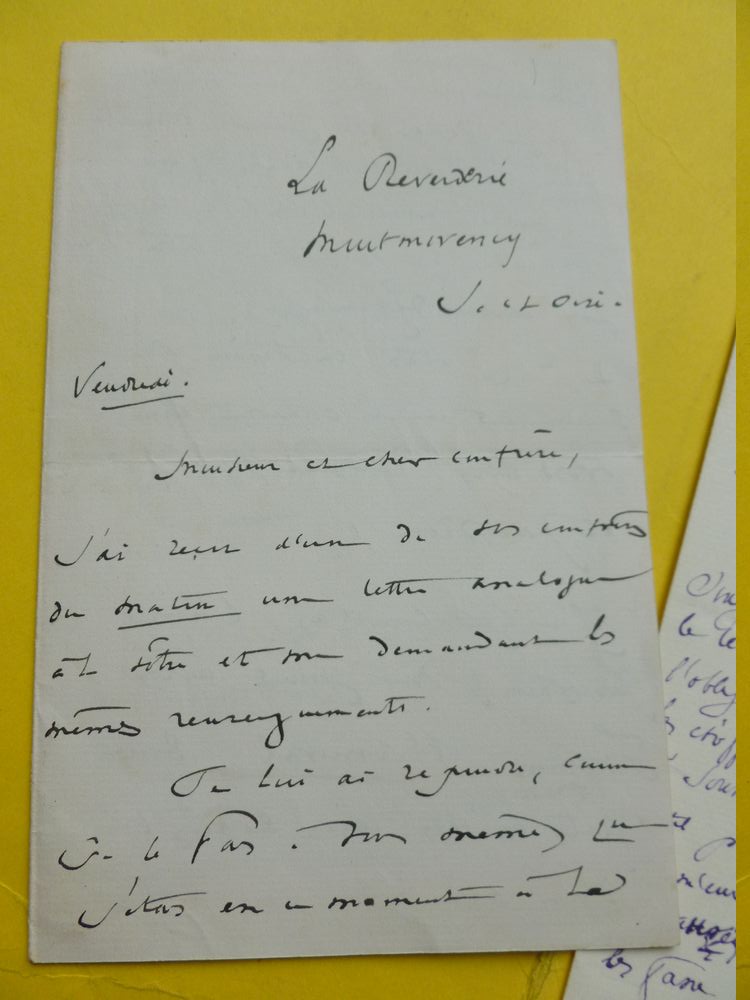 La Reverderie
Montmorency
S. et Oise.
Vendredi.
Monsieur et cher confrère,
J'ai reçu d'un de vos confrères
du Matin une lettre analogue
à la vôtre et me demandant les
mêmes renseignements.
Je lui ai répondu, comme
je le fais à vous même, que
j'étais en ce moment à la
le
les
les fasse